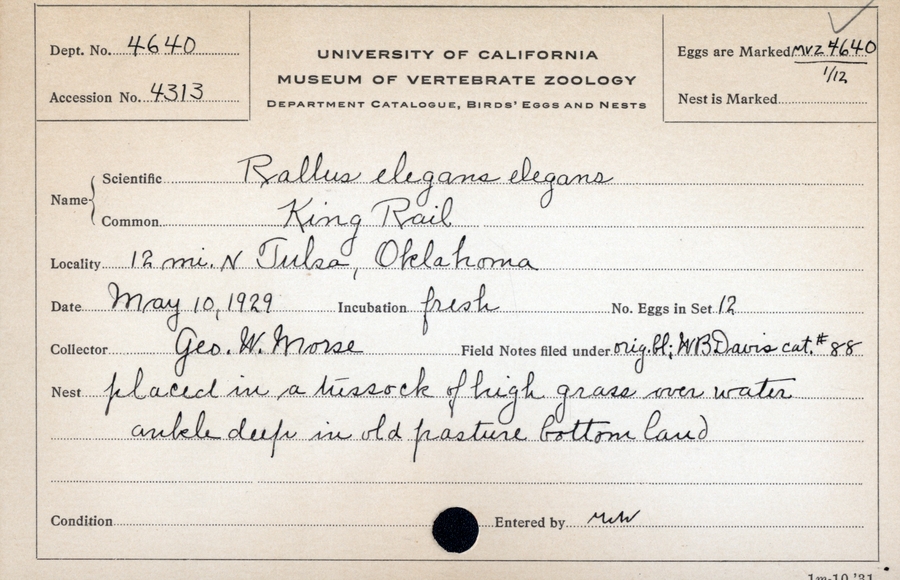 Dept. No. 4640
Accession No. 4313
UNIVERSITY OF CALIFORNIA
MUSEUM OF VERTEBRATE ZOOLOGY
DEPARTMENT CATALOGUE, BIRDS' EGGS AND NESTS
Eggs are Marked MVZ 4640
1/12
Nest is Marked
Name
Scientific Rallus elegans elegans
Common King Rail
Locality 12 mi. N Tulsa, Oklahoma
Date May 10, 1929 Incubation fresh No. Eggs in Set 12
Collector Geo. W. Morse Field Notes filed under orig. bl; WB Davis cat. # 88
Nest placed in a tussock of high grass over water
ankle deep in old pasture bottom land
Condition Entered by
1m-10,'31